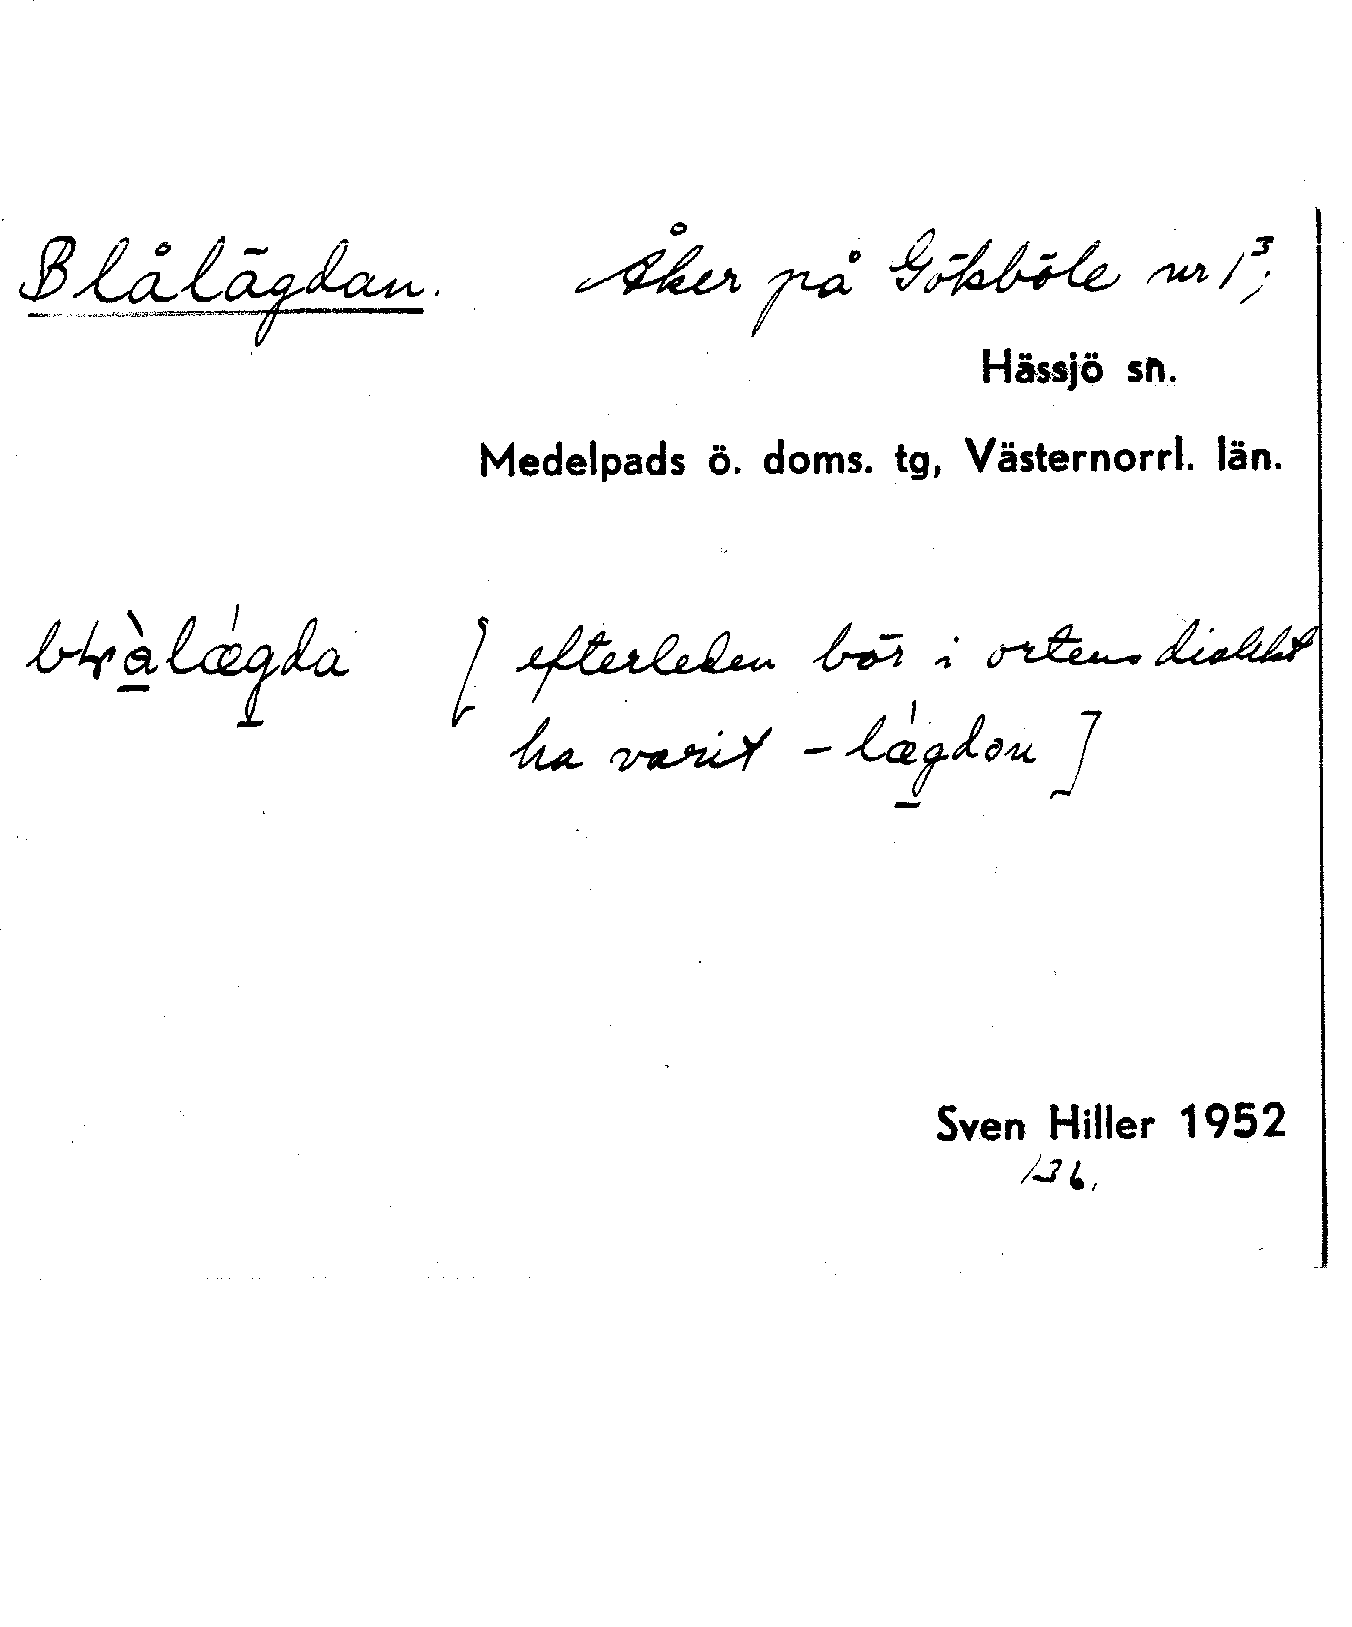 Blålägdan. Åker på Gökböle nr 1³;
Hässjö sn.
Medelpads ö. doms. tg, Västernorrl. län.
lægda [efterleden bör i ortens dialekt
ha varit – lǽgdon]
Sven Hiller 1952
136.